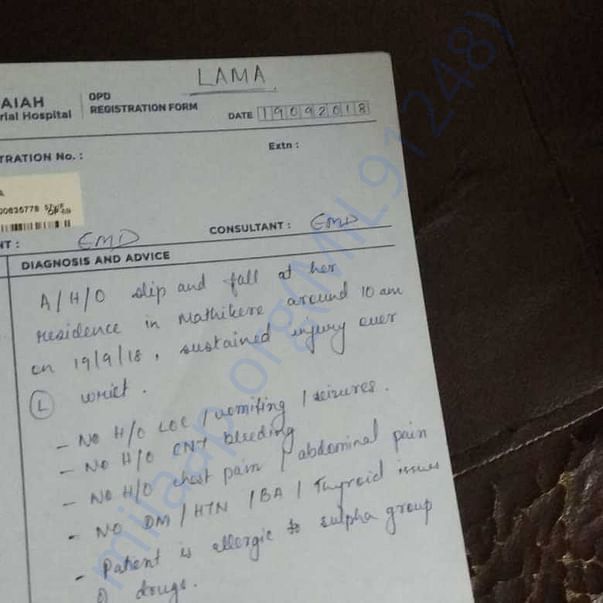 LAMA
AIAH
rial Hospital
OPD
REGISTRATION FORM
DATE 19092018
TRATION No. :
Extn :
00636778 57Y/F
NT : EMD
CONSULTANT : EMD
DIAGNOSIS AND ADVICE
A/H/O slip and fall at her
residence in Mathikere around 10 am
on 19/9/18, sustained injury over
(L) wrist.
- NO H/O LOC / vomiting / seizures.
- NO H/O ENT bleeding
- NO H/O chest pain / abdominal pain
- NO DM / HTN / BA / Thyroid issues
- Patient is allergic to sulpha group
drugs.
milaap.org(MIL91248)